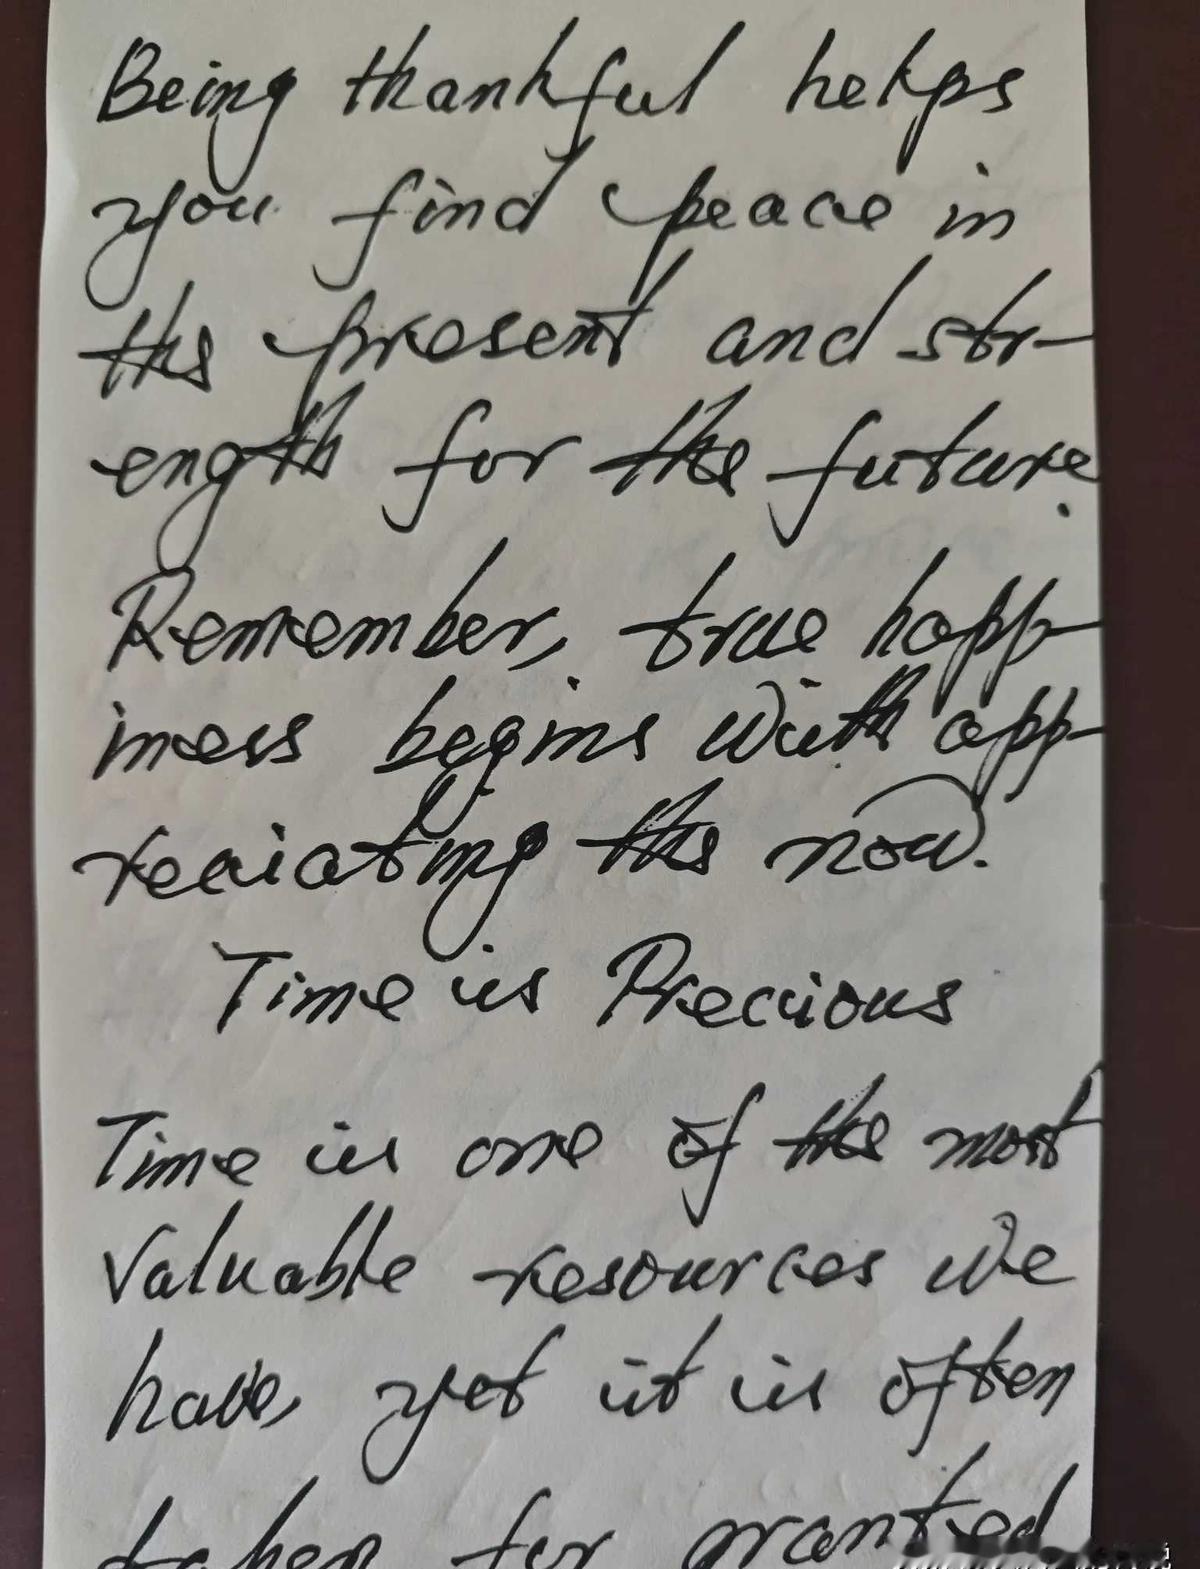 Being thankful helps
you find peace in
the present and str-
ength for the future.
Remember, true happ-
iness begins with app-
reciating the now.
Time is Precious
Time is one of the most
valuable resources we
have, yet it is often
taken for granted